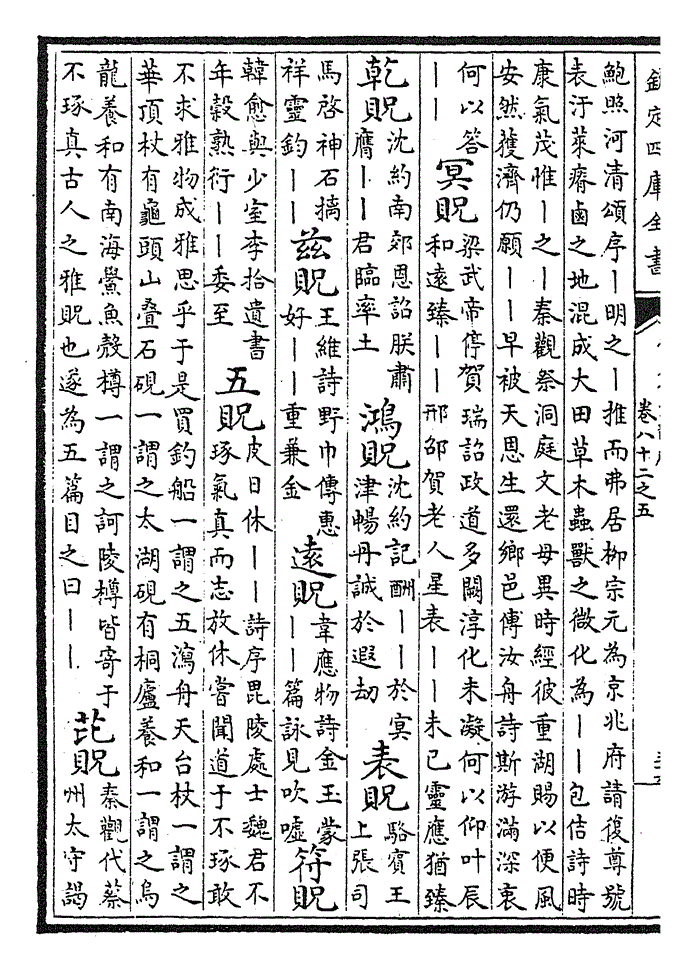 欽定四庫全書
卷八十二之五
鮑照河清頌序｜明之｜推而弗居柳宗元為京兆府請復尊號
表汙萊瘠鹵之地混成大田草木蟲獸之微化為｜｜包佶詩時
康氣茂惟｜之｜秦觀祭洞庭文老母異時經彼重湖賜以便風
安然獲濟仍願｜｜早被天恩生還鄉邑傅汝舟詩斯游滿深衷
何以答
｜｜
冥貺
梁武帝停賀瑞詔政道多闕淳化未凝何以仰叶辰
和遠臻｜｜邢邵賀老人星表｜｜未已靈應猶臻
乾貺
沈約南郊恩詔朕肅
膺｜｜君臨率土
鴻貺
沈約記酬｜｜於冥
津暢丹誠於遐劫
表貺
駱賓王
上張司
馬啓神石摛
祥靈鈞｜｜
茲貺
王維詩野巾傳惠
好｜｜重兼金
遠貺
韋應物詩金玉蒙
｜｜篇詠見吹噓
符貺
韓愈與少室李拾遺書
年穀熟衍｜｜委至
五貺
皮日休｜｜詩序毘陵處士魏君不
琢氣真而志放休嘗聞道于不琢敢
不求雅物成雅思乎于是買釣船一謂之五瀉舟天台杖一謂之
華頂杖有龜頭山叠石硯一謂之太湖硯有桐廬養和一謂之烏
龍養和有南海鱟魚殼樽一謂之訶陵樽皆寄于
不琢真古人之雅貺也遂為五篇目之曰｜｜
芘貺
秦觀代蔡
州太守謁